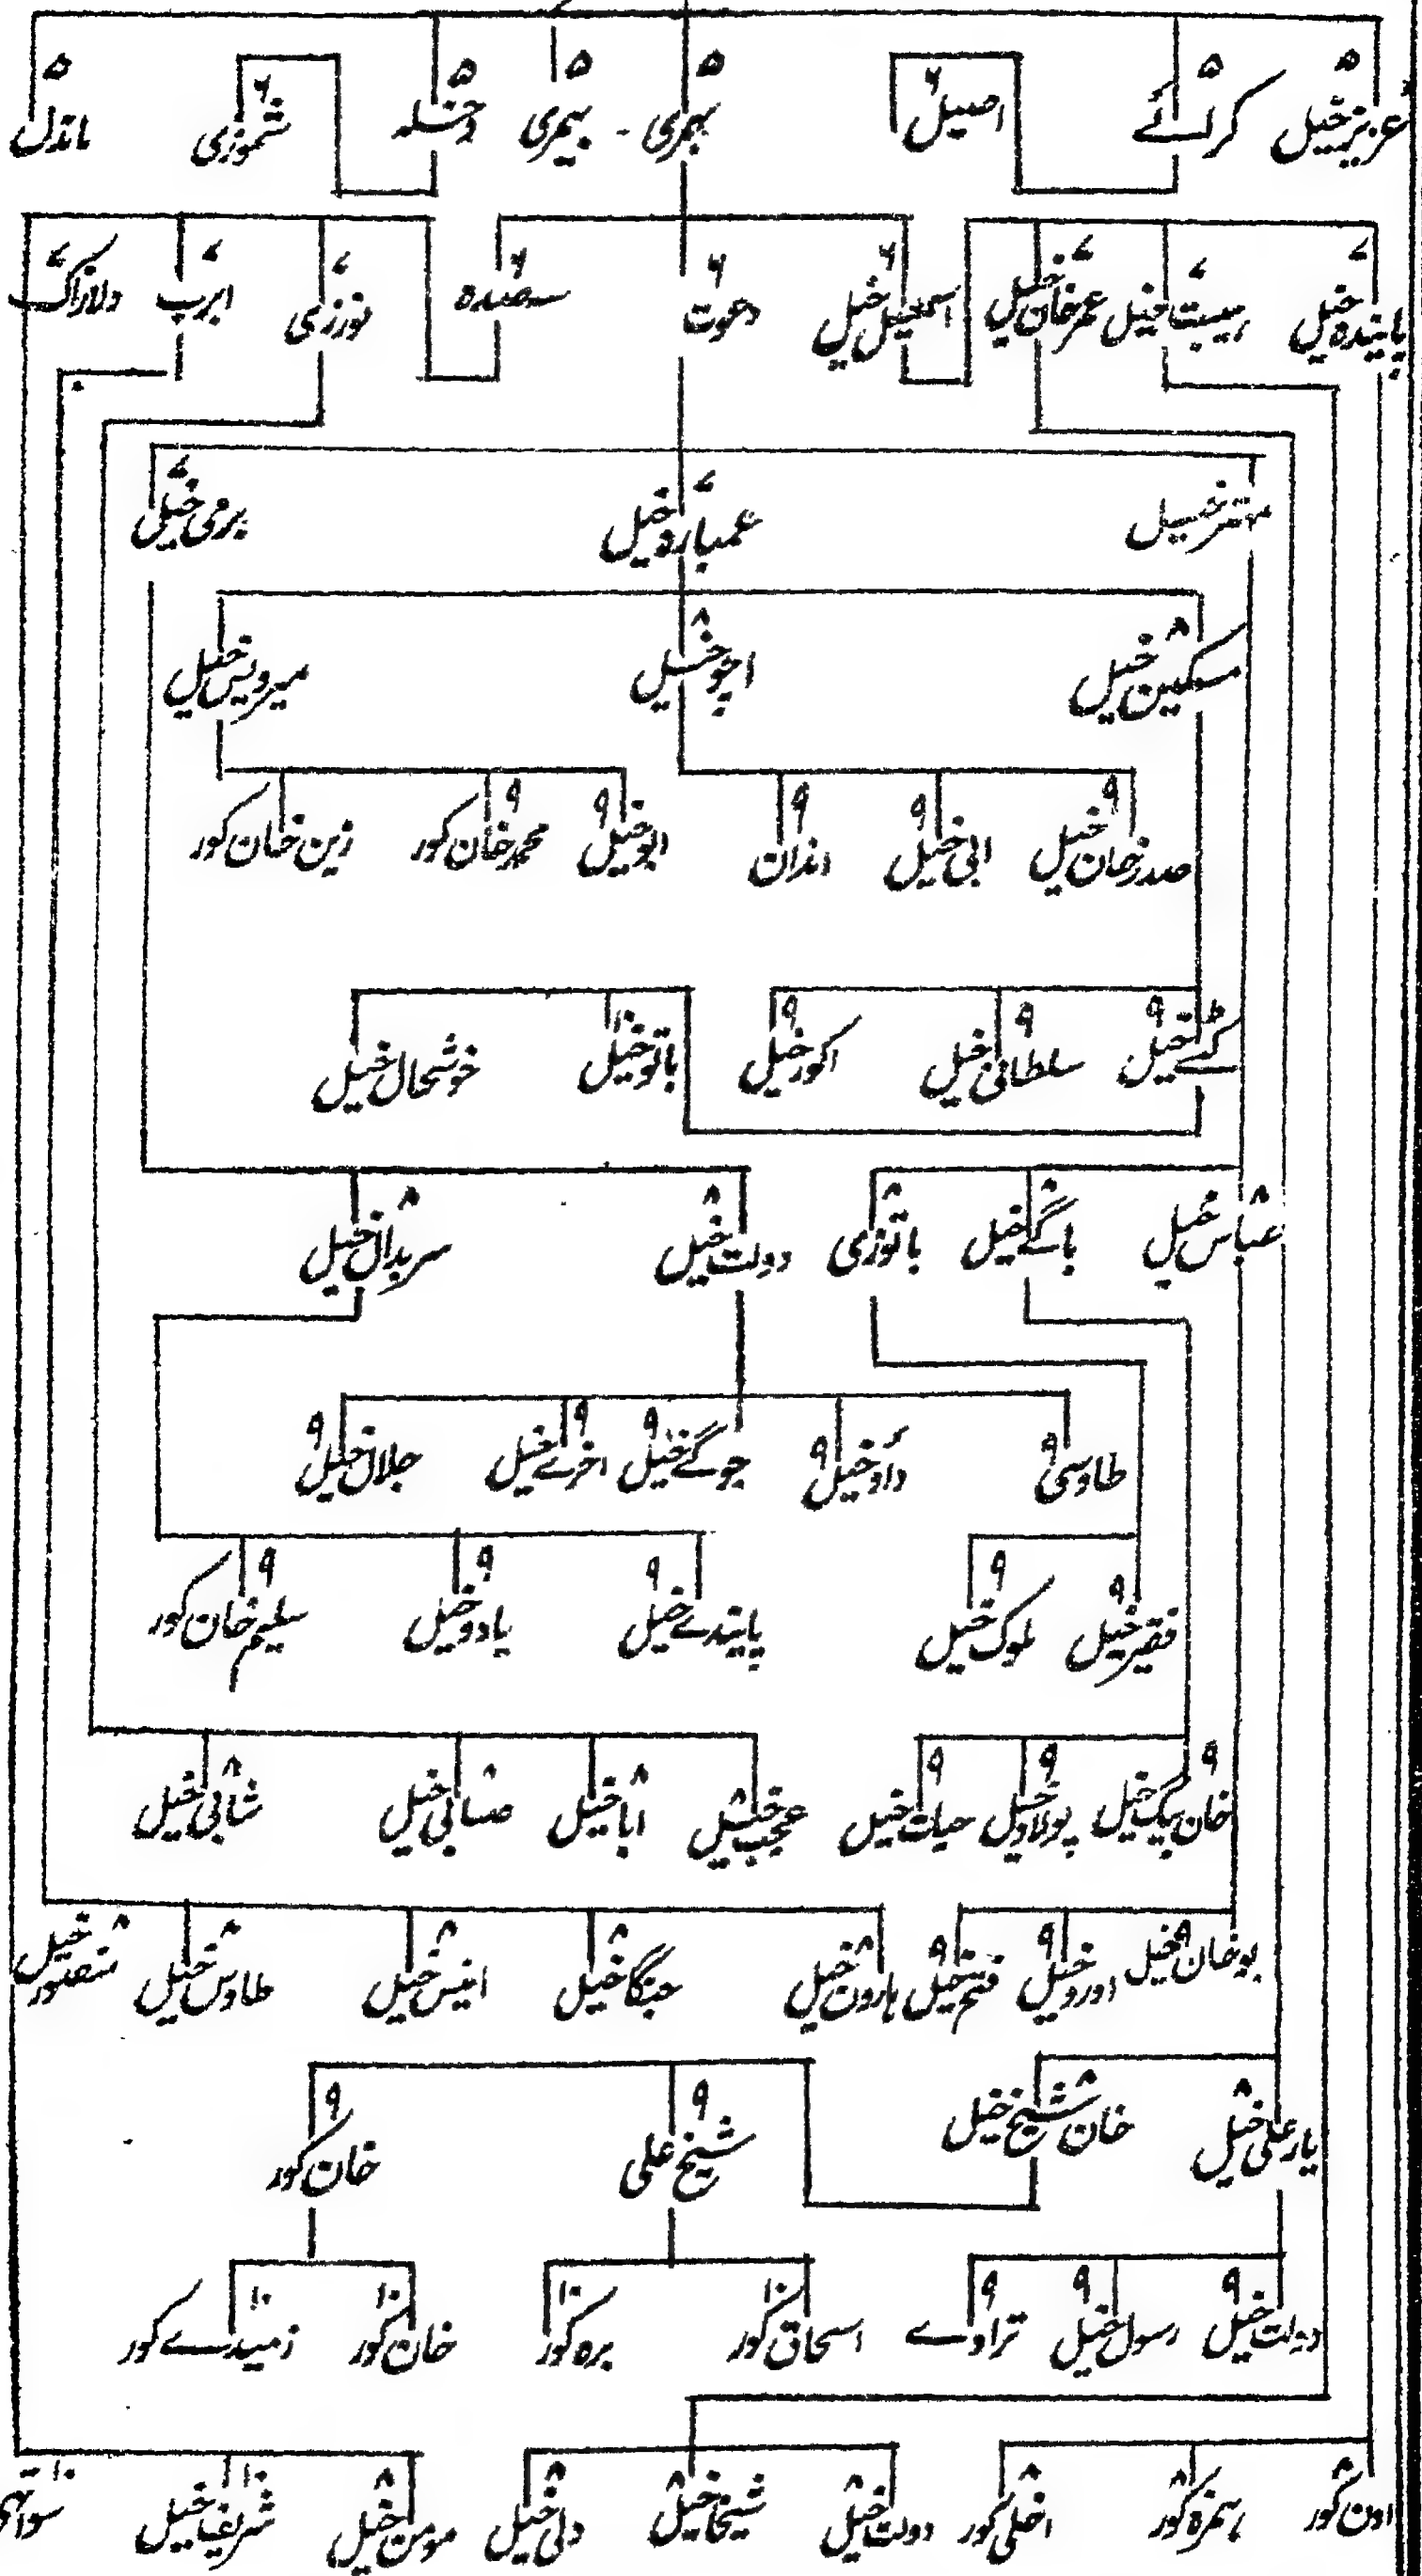 عزیز خیل ۵ کرلسائے ۵ اصیل ۶ بہمری ۵ - بیمری ۵ دخسلہ ۵ شموزی ۶ ماندل ۵
پایندہ خیل ۷ ہیبت خیل ۷ عمر خان خیل ۷ اسمعیل خیل ۶ دعوت ۶ سعیدہ ۶ نورزی ۷ ابرپ ۷ دلازاک ۷
متر خیل عمبارہ خیل ۷ برمی خیل ۷
مسکین خیل ۸ اچو خیل ۸ میرویس خیل
صدر خان خیل ۹ ابی خیل ۹ اندان ۹ ابو خیل ۹ محمد خان کور ۹ زین خان کور
گٹے خیل ۹ سلطانی خیل ۹ اکور خیل ۹ باتو خیل ۱۰ خوشحال خیل
عباس خیل ۸ باگے خیل ۸ باتوزی ۸ دولت خیل ۸ سربدال خیل ۸
طاوسی ۹ داؤد خیل ۹ جوگے خیل ۹ اخرے خیل ۹ جلال خیل ۹
فقیر خیل ۹ ملوک خیل ۹ پایندے خیل ۹ یادو خیل ۹ سلیم خان کور ۹
خان بیگ خیل ۹ پولاد خیل ۹ حیات خیل ۹ عجب خیل ۸ ابا خیل ۸ صنابی خیل ۸ شابی خیل ۸
بوخان خیل ۹ اورو خیل ۹ فتح خیل ۹ ہارون خیل ۸ جنگا خیل ۸ انیس خیل ۸ طاوس خیل ۸ منصور خیل ۸
یار علی خیل ۸ خان شیخ خیل ۸ شیخ علی ۹ خان کور ۹
دولت خیل ۹ رسول خیل ۹ تراوے ۹ اسحاق کور ۱۰ برہ کور ۱۰ خان کور ۱۰ زمیندے کور ۱۰
اون کور ۸ ہمزہ کور ۸ اخلی کور ۸ دولت خیل ۸ شیخا خیل ۸ دلی خیل ۸ مومن خیل ۸ شریف خیل ۱۰